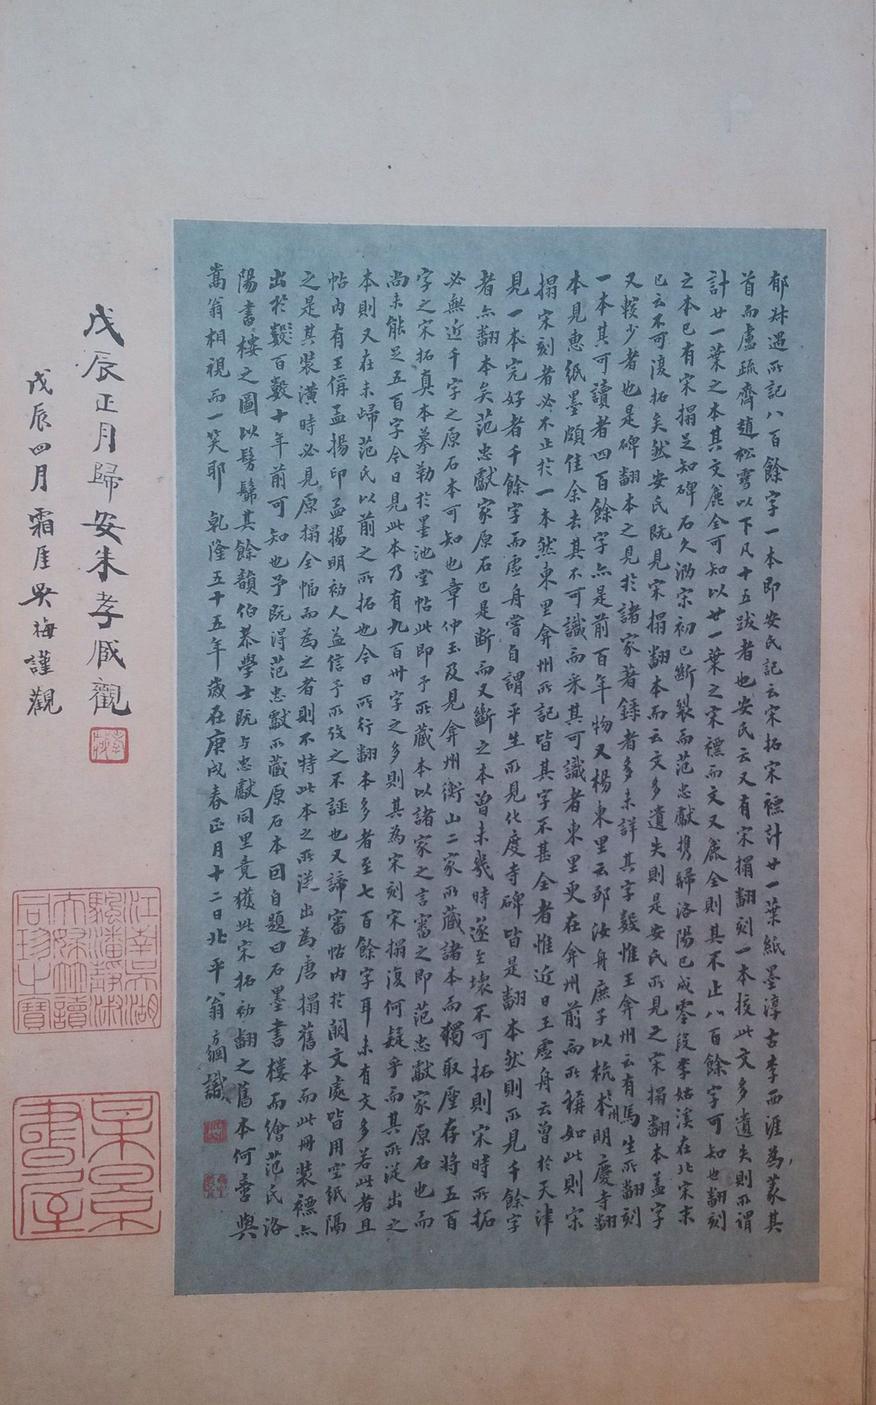 郁林遇所記八百餘字一本即安氏記云宋拓宋褾計廿一葉紙墨淳古李西涯為篆其
首而盧疏齋趙松雪以下凡十五跋者也安氏云又有宋搨翻刻一本按此文多遺失則所謂
計廿一葉之本其文麁全可知以廿一葉之宋褾而文又麁全則其不止八百餘字可知也翻刻
之本已有宋搨足知碑石久泐宋初已斷裂而范忠獻攜歸洛陽已成零段李姑溪在北宋末
已云不可復拓矣然安氏既見宋搨翻本而云文多遺失則是安氏所見之宋搨翻本蓋字
又較少者也是碑翻本之見於諸家著錄者多未詳其字數惟王弇州云有馬生所翻刻
一本其可讀者四百餘字亦是前百年物又楊東里云鄒汝舟庶子以杭州本明慶寺翻
本見惠紙墨頗佳余去其不可識而采其可識者東里更在弇州前而所稱如此則宋
搨宋刻者必不止於一本然東里弇州所記皆其字不甚全者惟近日王虛舟云曾於天津
見一本完好者千餘字而虛舟嘗自謂平生所見化度寺碑皆是翻本然則所見千餘字
者亦翻本矣范忠獻家原石已是斷而又斷之本曾未幾時遂至壞不可拓則宋時所拓
必無近千字之原石本可知也章仲玉及見弇州衡山二家所藏諸本而獨取歷存將五百
字之宋拓真本摹勒於墨池堂帖此即予所藏本以諸家之言審之即范忠獻家原石也而
尚未能足五百字今日見此本乃有九百卅字之多則其為宋刻宋搨復何疑乎而其所從出之
本則又在未歸范氏以前之所拓也今日所行翻本多者至七百餘字耳未有文多若此者且
帖內有王偁孟揚印孟揚明初人益信予所攷之不誣也又諦審帖內於闕文處皆用空紙隔
之是其裝潢時必見原搨全幅而為之者則不特此本之所從出為唐搨舊本而此冊裝褾亦
出於數百數十年前可知也予既得范忠獻所藏原石本回自題曰石墨書樓而繪范氏洛
陽書樓之圖以髣髴其餘韻伯恭學士既与忠獻同里竟獲此宋拓初翻之舊本何啻與
嵩翁相視而一笑耶 乾隆五十五年歲在庚戌春正月十二日北平翁方綱識
戊辰正月歸安朱孝臧觀
戊辰四月霜厓吳梅謹觀
江南吳湖
驅潘靜淑
夫婦並讀
同珍之寶
梅景
書屋